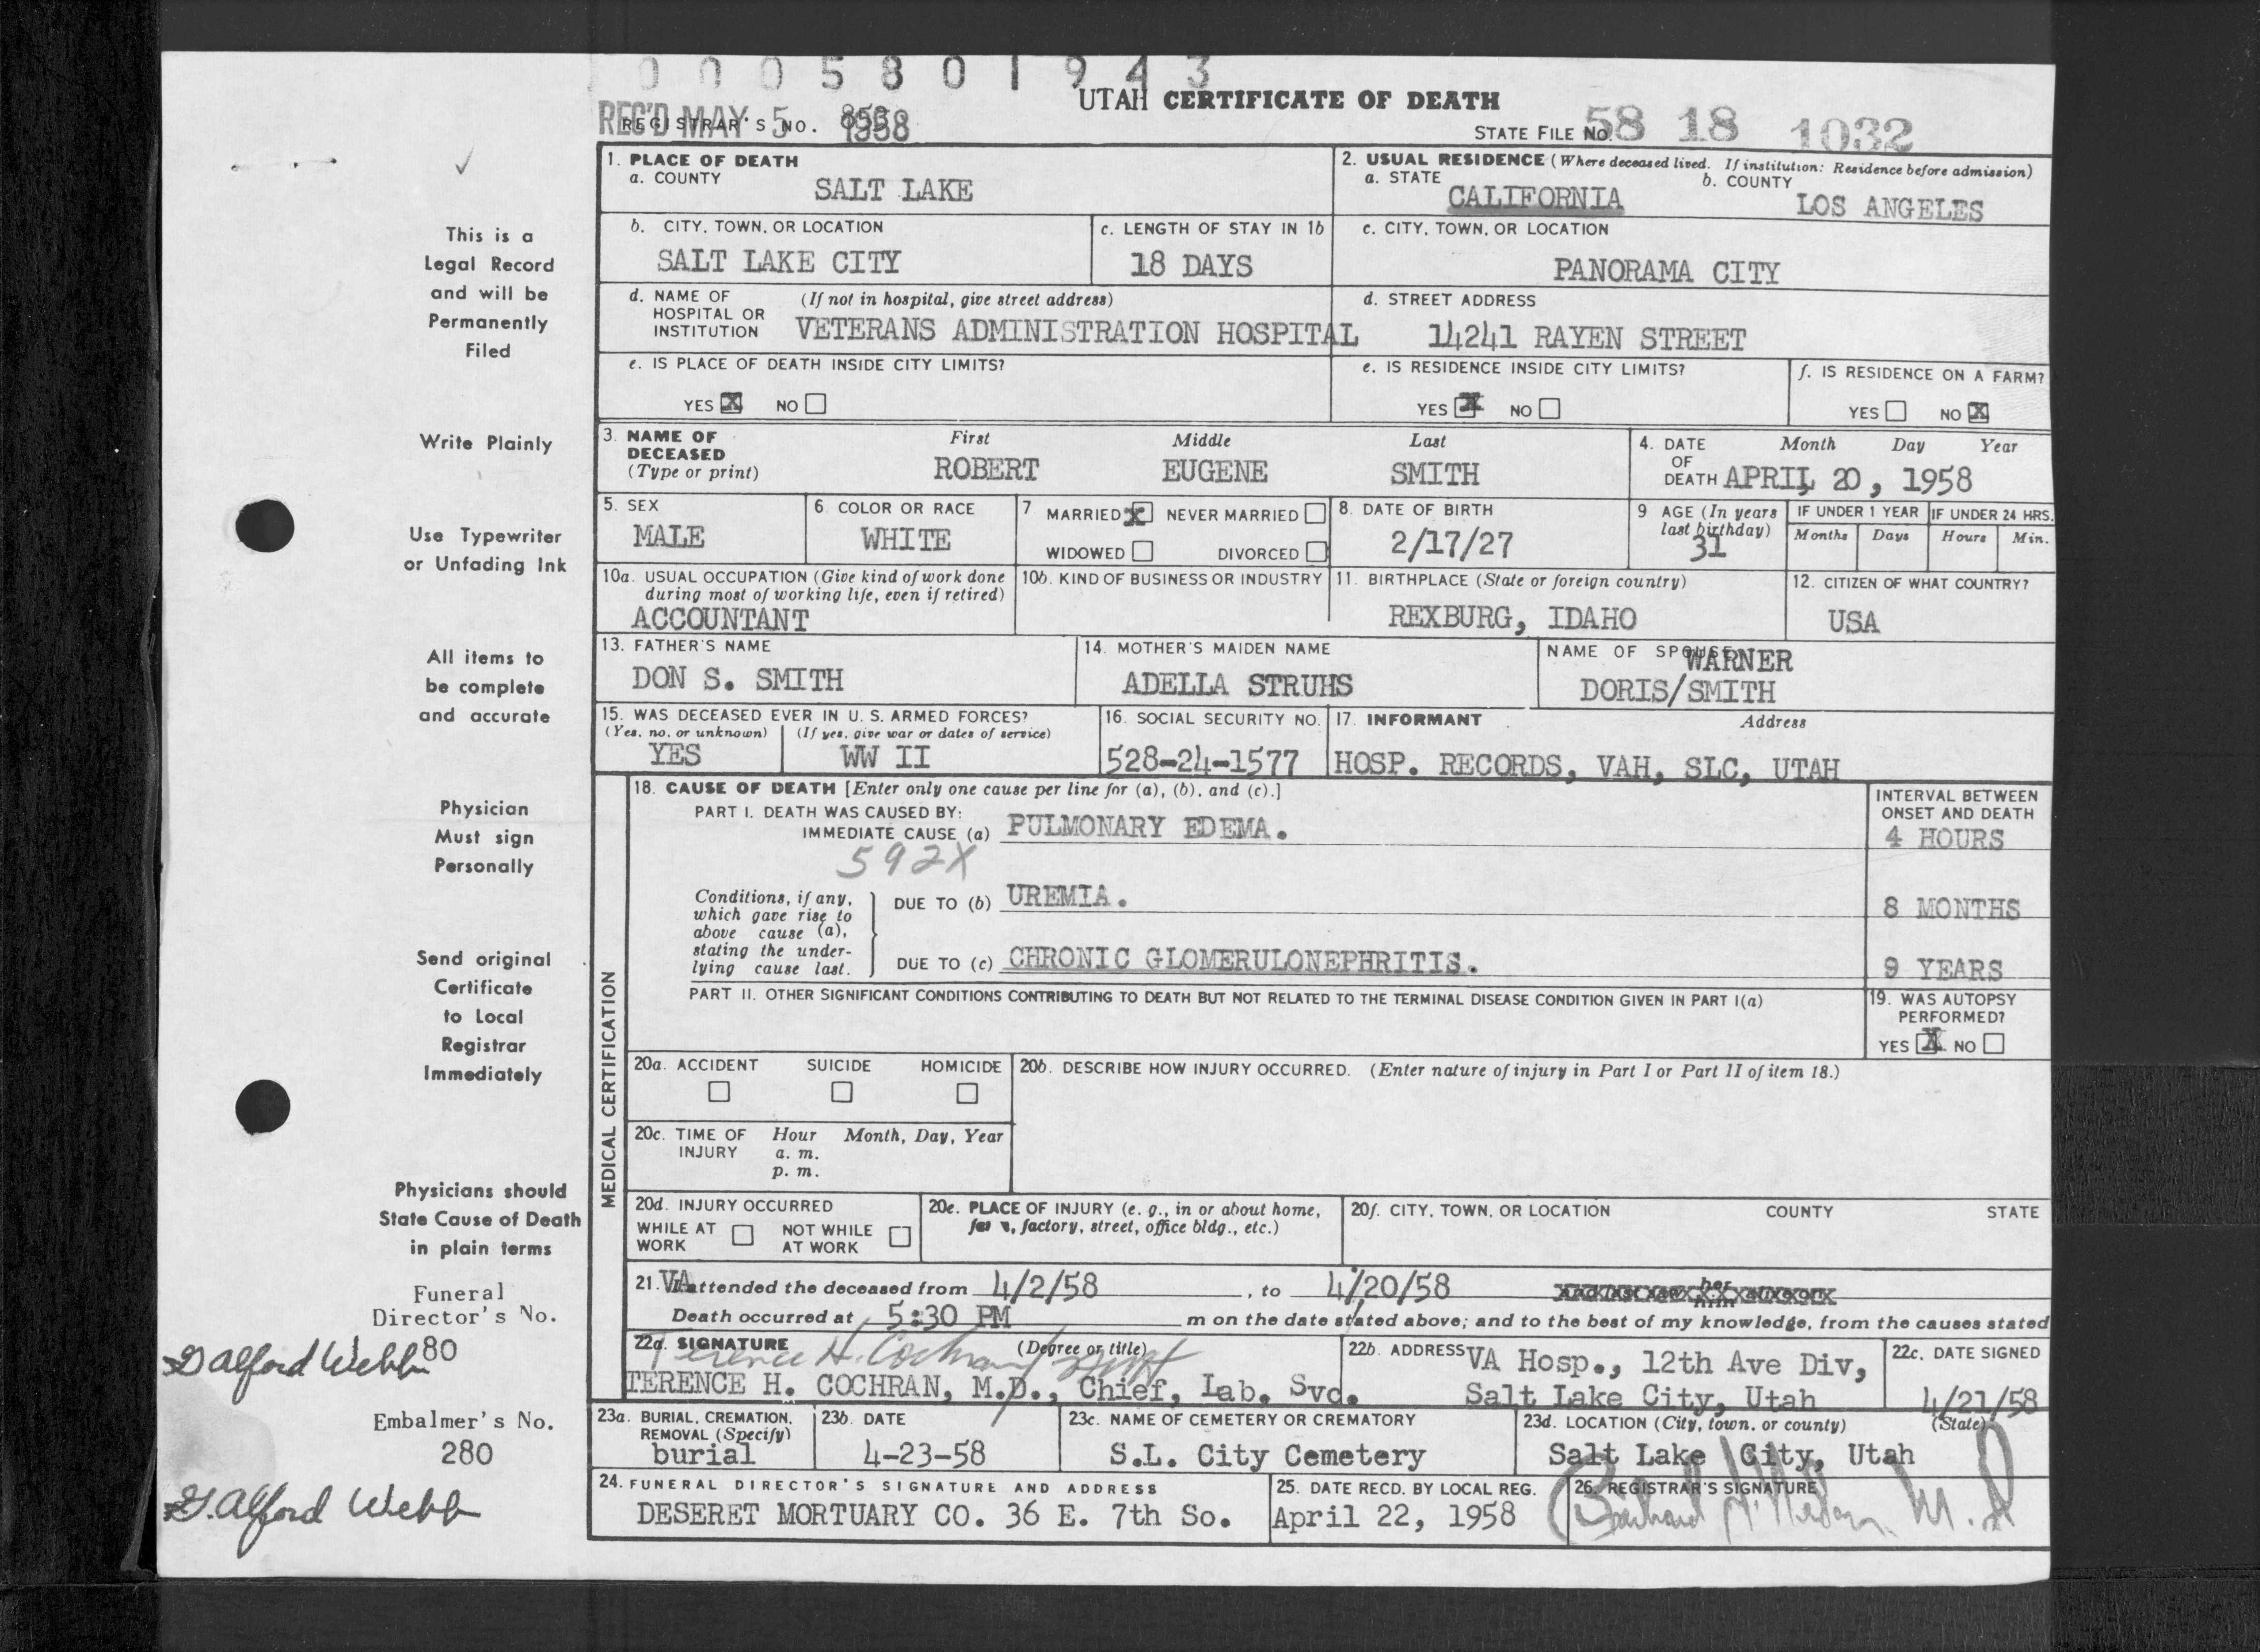 0 0 0 5 8 0 1 9 4 3
UTAH CERTIFICATE OF DEATH
REC'D MAY 5 1958
REGISTRAR'S NO.
STATE FILE NO. 58 18 1032
1. PLACE OF DEATH
a. COUNTY
SALT LAKE
2. USUAL RESIDENCE (Where deceased lived. If institution: Residence before admission)
a. STATE
CALIFORNIA
b. COUNTY
LOS ANGELES
b. CITY, TOWN, OR LOCATION
SALT LAKE CITY
c. LENGTH OF STAY IN 1b
18 DAYS
c. CITY, TOWN, OR LOCATION
PANORAMA CITY
d. NAME OF HOSPITAL OR INSTITUTION
(If not in hospital, give street address)
VETERANS ADMINISTRATION HOSPITAL
d. STREET ADDRESS
14241 RAYEN STREET
e. IS PLACE OF DEATH INSIDE CITY LIMITS?
YES X NO
e. IS RESIDENCE INSIDE CITY LIMITS?
YES X NO
f. IS RESIDENCE ON A FARM?
YES NO X
3. NAME OF DECEASED (Type or print)
First Middle Last
ROBERT EUGENE SMITH
4. DATE OF DEATH
Month Day Year
APRIL 20, 1958
5. SEX
MALE
6. COLOR OR RACE
WHITE
7. MARRIED X NEVER MARRIED
WIDOWED DIVORCED
8. DATE OF BIRTH
2/17/27
9 AGE (In years last birthday)
31
IF UNDER 1 YEAR
Months Days
IF UNDER 24 HRS.
Hours Min.
10a. USUAL OCCUPATION (Give kind of work done during most of working life, even if retired)
ACCOUNTANT
10b. KIND OF BUSINESS OR INDUSTRY
11. BIRTHPLACE (State or foreign country)
REXBURG, IDAHO
12. CITIZEN OF WHAT COUNTRY?
USA
13. FATHER'S NAME
DON S. SMITH
14. MOTHER'S MAIDEN NAME
ADELLA STRUHS
NAME OF SPOUSE
WARNER
DORIS/SMITH
15. WAS DECEASED EVER IN U. S. ARMED FORCES?
(Yes, no, or unknown) (If yes, give war or dates of service)
YES WW II
16. SOCIAL SECURITY NO.
528-24-1577
17. INFORMANT Address
HOSP. RECORDS, VAH, SLC, UTAH
MEDICAL CERTIFICATION
18. CAUSE OF DEATH [Enter only one cause per line for (a), (b), and (c).]
INTERVAL BETWEEN ONSET AND DEATH
PART I. DEATH WAS CAUSED BY:
IMMEDIATE CAUSE (a) PULMONARY EDEMA.
4 HOURS
592X
Conditions, if any, which gave rise to above cause (a), stating the underlying cause last.
DUE TO (b) UREMIA.
8 MONTHS
DUE TO (c) CHRONIC GLOMERULONEPHRITIS.
9 YEARS
PART II. OTHER SIGNIFICANT CONDITIONS CONTRIBUTING TO DEATH BUT NOT RELATED TO THE TERMINAL DISEASE CONDITION GIVEN IN PART I(a)
19. WAS AUTOPSY PERFORMED?
YES X NO
20a. ACCIDENT SUICIDE HOMICIDE
20b. DESCRIBE HOW INJURY OCCURRED. (Enter nature of injury in Part I or Part II of item 18.)
20c. TIME OF INJURY
Hour Month, Day, Year
a. m.
p. m.
20d. INJURY OCCURRED
WHILE AT WORK NOT WHILE AT WORK
20e. PLACE OF INJURY (e. g., in or about home, factory, street, office bldg., etc.)
20f. CITY, TOWN, OR LOCATION COUNTY STATE
21. VA attended the deceased from 4/2/58, to 4/20/58
Death occurred at 5:30 PM m on the date stated above; and to the best of my knowledge, from the causes stated
22a. SIGNATURE (Degree or title)
Terence H. Cochran
TERENCE H. COCHRAN, M.D., Chief, Lab. Svc.
22b. ADDRESS
VA Hosp., 12th Ave Div,
Salt Lake City, Utah
22c. DATE SIGNED
4/21/58
23a. BURIAL, CREMATION, REMOVAL (Specify)
burial
23b. DATE
4-23-58
23c. NAME OF CEMETERY OR CREMATORY
S.L. City Cemetery
23d. LOCATION (City, town, or county) (State)
Salt Lake City, Utah
24. FUNERAL DIRECTOR'S SIGNATURE AND ADDRESS
DESERET MORTUARY CO. 36 E. 7th So.
25. DATE RECD. BY LOCAL REG.
April 22, 1958
26. REGISTRAR'S SIGNATURE
M.D
This is a
Legal Record
and will be
Permanently
Filed
Write Plainly
Use Typewriter
or Unfading Ink
All items to
be complete
and accurate
Physician
Must sign
Personally
Send original
Certificate
to Local
Registrar
Immediately
Physicians should
State Cause of Death
in plain terms
Funeral
Director's No.
80
G Alford Webb
Embalmer's No.
280
G. Alford Webb